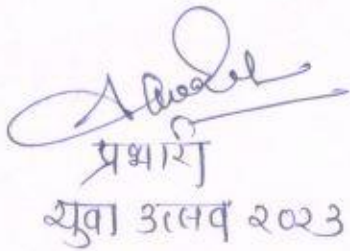 प्रभारी
युवा उत्सव २०२३